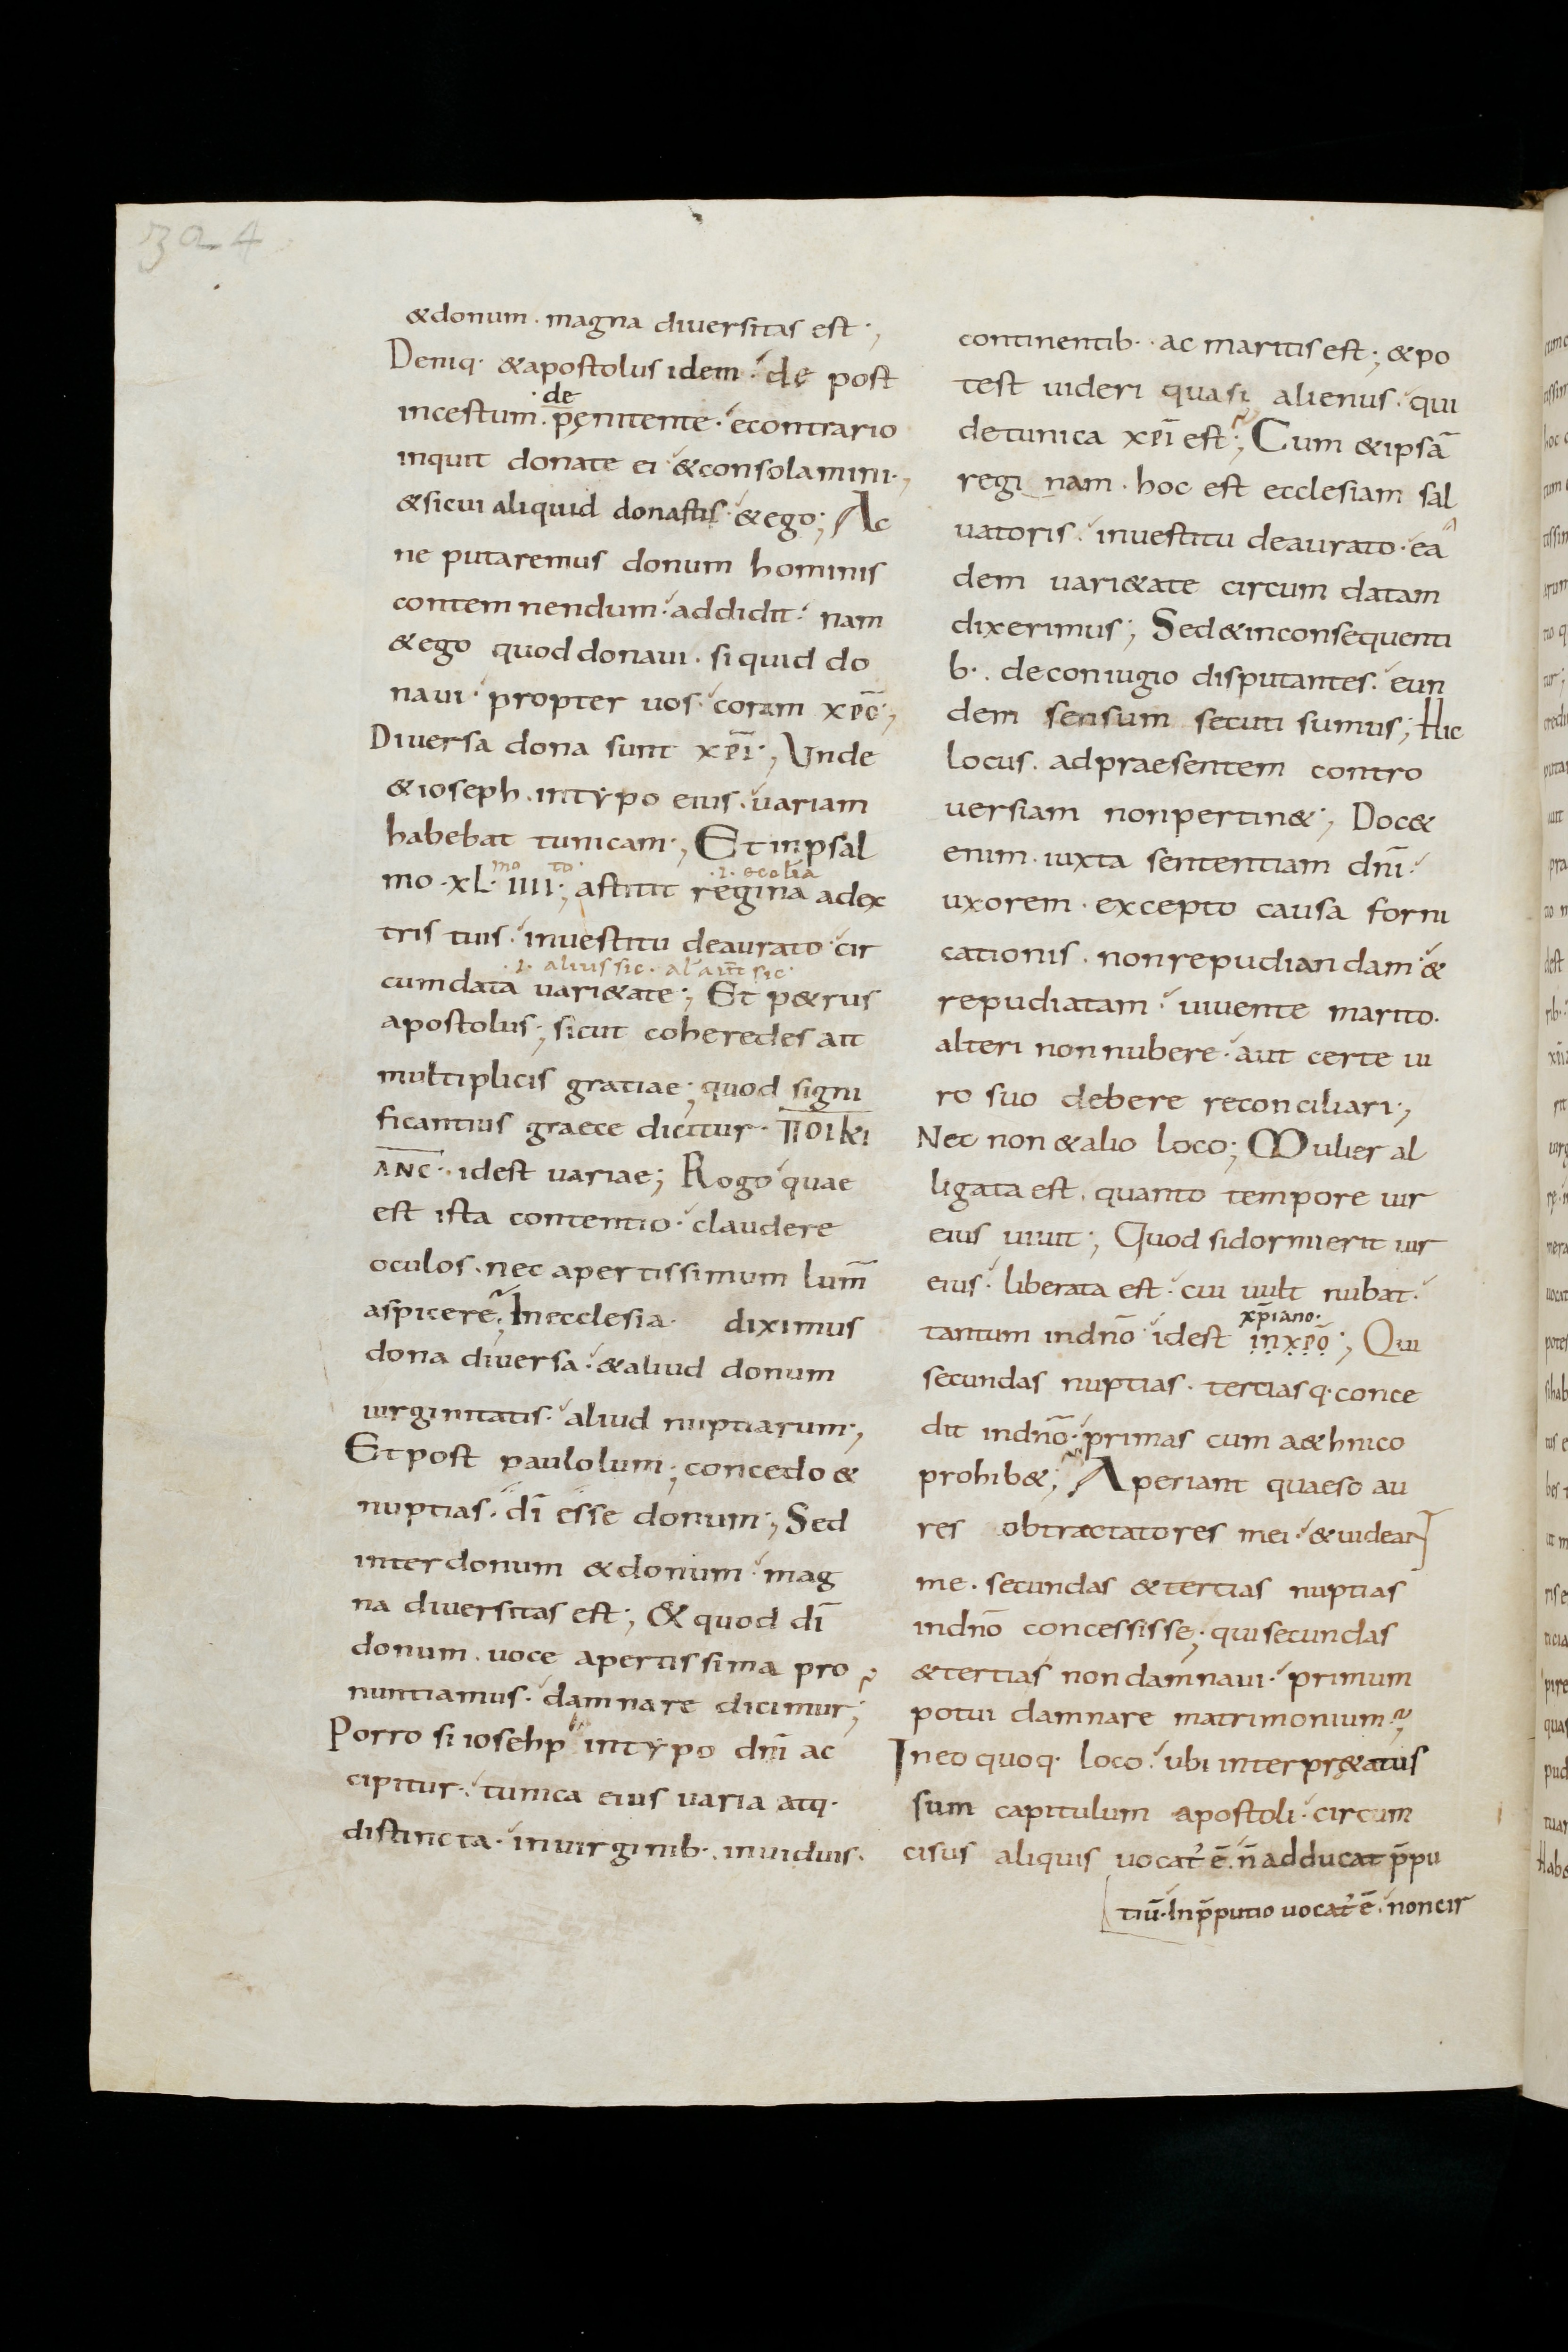 324
&donum. magna diuersitas est;
Deniq· &apostolus idem· de post
de
incestum· pęnitente· econtrario
inquit donate ei &consolamini;
&sicui aliquid donastis· &ego; Ac
ne putaremus donum hominis
contemnendum· addidit· nam
&ego quod donaui· si quid do
naui· propter uos· coram xp̄o;
Diuersa dona sunt xp̄i; Unde
&ioseph· intypo eius· uariam
habebat tunicam; Et inpsal
mo to ·i· ecclia
mo ·xl· iiii; astitit regina adex
tris tuis· inuestitu deaurato· cir
·i· alius sic· al aut̄ sic·
cumdata uari&ate; Et p&rus
apostolus; sicut coheredes ait
multiplicis gratiae; quod signi
ficantius graece dicitur· ΠΟΙΚΙ
ΛΗC· idest uariae; Rogo quae
est ista contentio· claudere
oculos· nec apertissimum lum̄
aspicere; Inecclesia· diximus
dona diuersa· &aliud donum
uirginitatis· aliud nuptiarum;
Et post paulolum; concedo &
nuptias· dī esse donum; Sed
inter donum &donum· mag
na diuersitas est; & quod dī
donum· uoce apertissima pro
nuntiamus· damnare dicimur;
Porro si iosehp intypo dn̄i ac
cipitur· tunica eius uaria atq·
distincta· inuirginib· inuiduis·
continentib· ac maritis est; &po
test uideri quasi alienus· qui
detunica xp̄i est; Cum &ipsā
reginam· hoc est ecclesiam sal
uatoris· inuestitu deaurato· ea
dem uari&ate circum datam
dixerimus; Sed&inconsequenti
b· deconiugio disputantes· eun
dem sensum secuti sumus; Hic
locus· adpraesentem contro
uersiam nonpertin&; Doc&
enim· iuxta sententiam dn̄i·
uxorem· excepto causa forni
cationis· nonrepudiandam· &
repudiatam· uiuente marito·
alteri non nubere· aut certe ui
ro suo debere reconciliari;
Nec non &alio loco; Mulier al
ligata est· quanto tempore uir
eius uiuit; Quod sidormierit uir
eius· liberata est· cui uult nubat·
xp̄iano·
tantum indn̄o· idest inxp̄o; Qui
secundas nuptias· tertiasq· conce
dit indn̄o· primas cum a&hnico
prohib&; Aperiant quaeso au
res obtractatores mei· &uideant
me· secundas &tertias nuptias
indn̄o concessisse; qui secundas
&tertias non damnaui· primum
potui damnare matrimonium;
Ineo quoq· loco· ubi interpr&atus
sum capitulum apostoli· circum
cisus aliquis uocat' ē· n̄ adducat p̄pu
tiū· In p̄putio uocat' ē· non cir